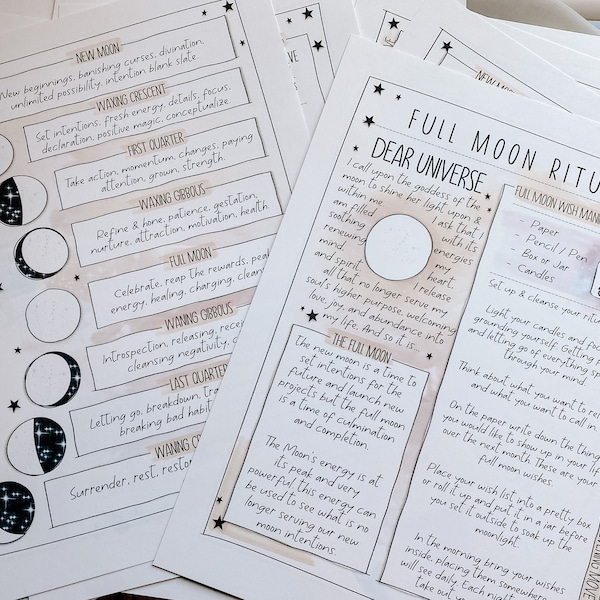 NEW MOON
New beginnings, banishing curses, divination,
unlimited possibility, intention blank slate.
WAXING CRESCENT
Set intentions, fresh energy, details, focus,
declaration, positive magic, conceptualize.
FIRST QUARTER
Take action, momentum, changes, paying
attention, grown, strength.
WAXING GIBBOUS
Refine & hone, patience, gestation,
nurture, attraction, motivation, health.
FULL MOON
Celebrate, reap the rewards, peak
energy, healing, charging,
WANING GIBBOUS
Introspection, releasing,
cleansing negativity,
LAST QUARTER
Letting go, breakdown,
breaking bad habit
WANING
Surrender, rest,
NEW MOON
FULL MOON RITU
DEAR UNIVERSE
I call upon the goddess of the
moon to shine her light upon &
within me. I ask that I
am filled with its
soothing energies
renewing my
mind, heart,
and spirit. I release
all that no longer serve my
soul's higher purpose, welcoming
love, joy, and abundance into
my life. And so it is...
THE FULL MOON
The new moon is a time to
set intentions for the
future and launch new
projects but the full moon
is a time of culmination
and completion.
The Moon's energy is at
its peak and very
powerful, this energy can
be used to see what is no
longer serving our new
moon intentions.
FULL MOON WISH MAN
- Paper
- Pencil / Pen
- Box or Jar
- Candles
Set up & cleanse your
Light your candles and
grounding yourself. Getting
and letting go of everything
through your mind.
Think about what you want to
and what you want to call in.
On the paper write down the things
you would like to show up in your
over the next month. These are your
full moon wishes.
Place your wish list into a pretty box
or roll it up and put it in a jar before
you set it outside to soak up the
moonlight.
In the morning bring your wishes
inside, placing them somewhere
will see daily. Each night
take out